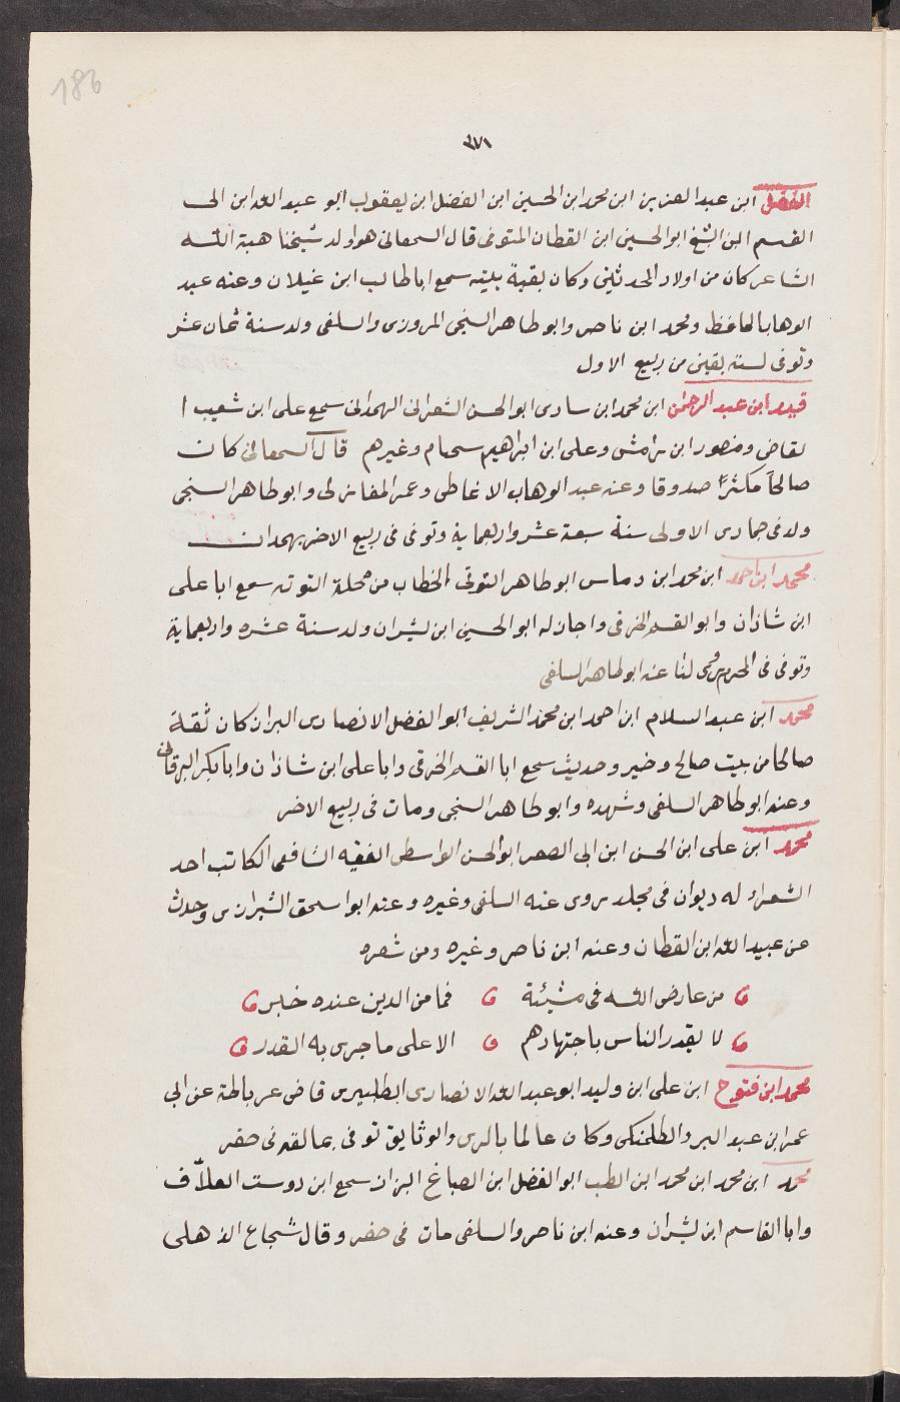 186
٣٧١
الفضل ابن عبد العزيز ابن محمد ابن الحسين ابن الفضل ابن يعقوب ابو عبد الله ابن الى
القسم ابن الشيخ ابو الحسين ابن القطان المتوفى قال السمعانى هو اولد شيخنا هبة الله
الشاعر كان من اولاد المحدثين وكان بقية بيته سمع ابا طالب ابن غيلان وعنه عبد
الوهاب الحافظ ومحمد ابن ناصر وابو طاهر السنجى المروزى والسلفى ولد سنة ثمان عشر
وتوفى لسته بقين من ربيع الاول
قيد ابن عبد الرحمن ابن محمد ابن سادى ابو الحسن الشعرانى الهمدانى سمع على ابن شعيب ا
لقاضى ومنصور ابن رامش وعلى ابن ابراهيم سحام وغيرهم قال السمعانى كان
صالحاً مكثراً صدوقا وعنه عبد الوهاب الاغاطى وعمر المغازلى وابو طاهر السنجى
ولد فى جمادى الاولى سنة سبعة عشر واربعماية وتوفى فى ربيع الاخر بهمدان
محمد ابن احمد ابن محمد ابن دماس ابو طاهر التوتى الخطاب من محلة التوته سمع ابا على
ابن شاذان وابو القسم الخرقى واجاز له ابو الحسين ابن بشران ولد سنة عشره واربعماية
وتوفى فى المحرم روى لنا عنه ابو طاهر السلفى
محمد ابن عبد السلام ابن احمد ابن محمد الشريف ابو الفضل الانصارى البزاز كان ثقة
صالحا من بيت صالح وخير وحديث سمع ابا القسم الخرقى وابا على ابن شاذان وابا بكر البرقانى
وعنه ابو طاهر السلفى وشهده وابو طاهر السنجى ومات فى ربيع الاخر
محمد ابن على ابن الحسن ابن ابى الصعر ابو الحسن الواسطى الفقيه الشافعى الكاتب احد
الشعراء له ديوان فى مجلد روى عنه السلفى وغيره وعنه ابوا سحق الشيرازى وحدث
عن عبيد الله ابن القطان وعنه ابن ناصر وغيره ومن شعره
من عارض الله فى مشيئة فما من الدين عنده خبر
لا يقدر الناس باجتهادهم الا على ما جرى به القدر
محمد ابن فتوح ابن على ابن وليد ابو عبد الله الانصارى الطلبيرى قاضى غرناطة عن ابى
عمر ابن عبد البر والطلمنكى وكان عالما بالرى والوثايق توفى بمالقه فى صفر
محمد ابن محمد ابن محمد ابن الطب ابو الفضل ابن الصباغ البزاز سمع ابن دوست العلاّف
وابا القاسم ابن بشران وعنه ابن ناصر والسلفى مات فى صفر وقال شجاع الذهلى